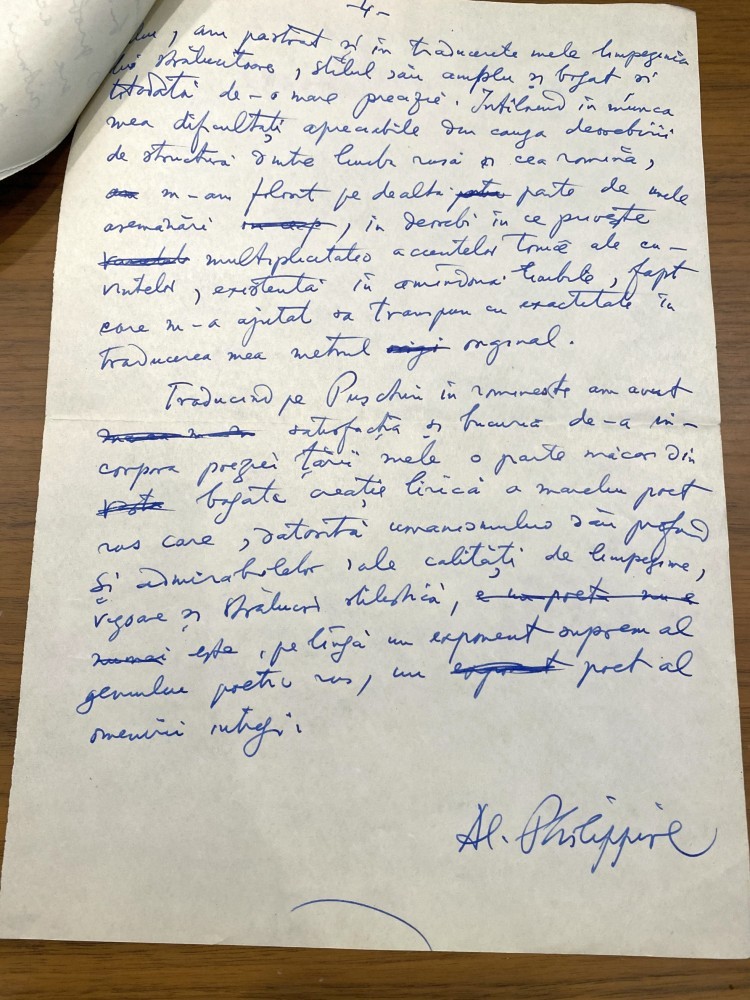 -4-
, am pastrat și în traducerile mele limpezimea
strălucitoare, stilul său amplu și bogat și
totodată de-o mare precizie. Întîlnind în munca
mea dificultăți apreciabile din cauza deosebirii
de structură dintre limba rusă și cea romînă,
m-am folosit pe dealtă parte de unele
asemănări , în deosebi în ce privește
multiplicitatea accentelor tonice ale cu-
vintelor, existentă în amîndouă limbile, fapt
care m-a ajutat să transpun cu exactitate în
traducerea mea metrul original.
Traducînd pe Pușchin în romînește am avut
satisfacția și bucuria de-a in-
corpora poeziei țării mele o parte măcar din
bogata creație lirică a marelui poet
rus care, datorită umanismului său profund
și admirabilelor sale calități de limpezime,
vigoare și străluciri stilistică, e un poet nu e
numai este, pe lîngă un exponent suprem al
geniului poetic rus, un exponent poet al
omenirii întregi.
Al. Philippide